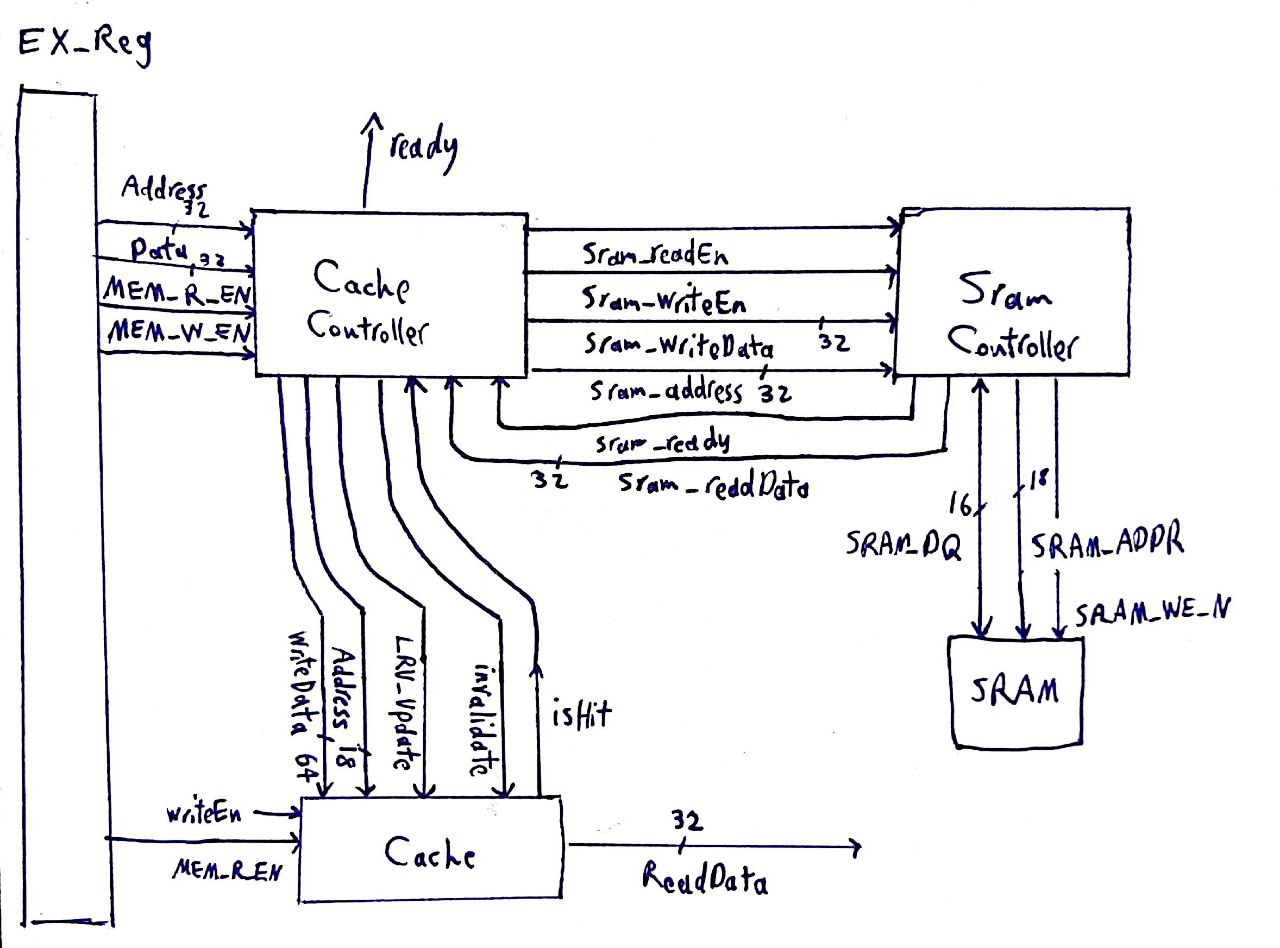 EX_Reg
ready
Address
32
Data 32
MEM_R_EN
MEM_W_EN
Cache
Controller
Sram_readEn
Sram_writeEn
Sram_writeData 32
Sram_address 32
Sram
Controller
sram_ready
32
Sram_readData
16
SRAM_DQ
18
SRAM_ADDR
SRAM_WE_N
SRAM
writeData 64
Address 18
LRU_Update
invalidate
isHit
writeEn
MEM_R_EN
Cache
32
ReadData